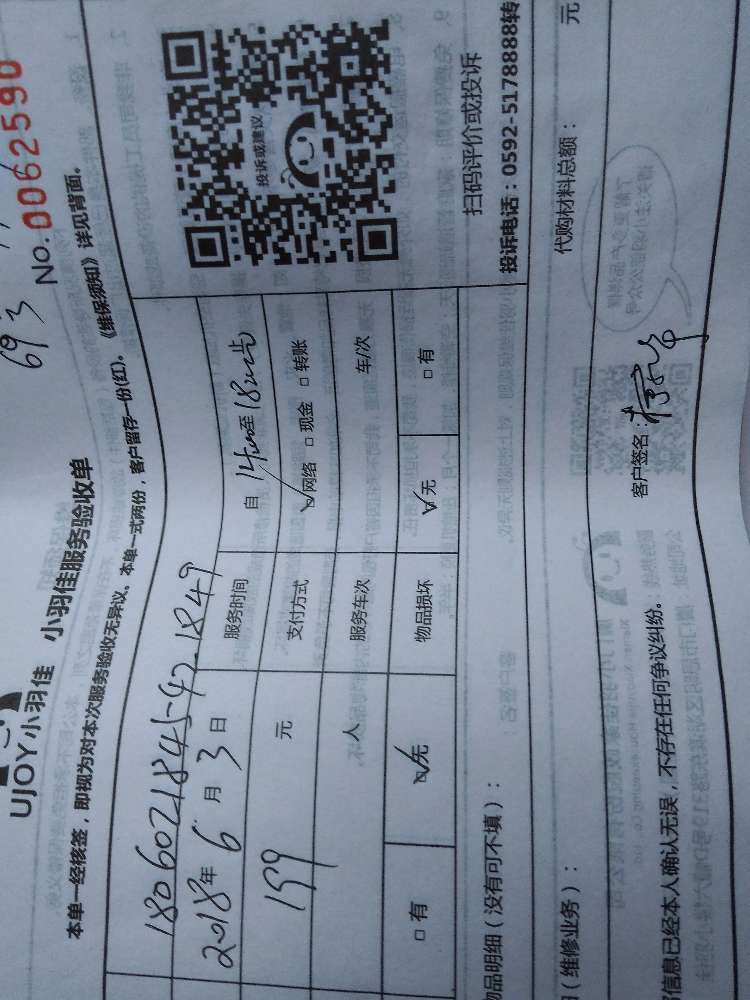 693
No.0062590
UJOY小羽佳 小羽佳服务验收单
本单一经核签，即视为对本次服务验收无异议。本单一式两份，客户留存一份(红)。《维保须知》详见背面。
180602184542-1849
2018年6月3日 服务时间 自14:00至18:00止
199元 支付方式 ☑网络 □现金 □转账
人 服务车次 车/次
□有 ☑无 物品损坏 ☑无 □有
投诉或建议
扫码评价或投诉
投诉电话：0592-5178888转
物品明细（没有可不填）：
（维修业务）： 代购材料总额： 元
信息已经本人确认无误，不存在任何争议纠纷。 客户签名：